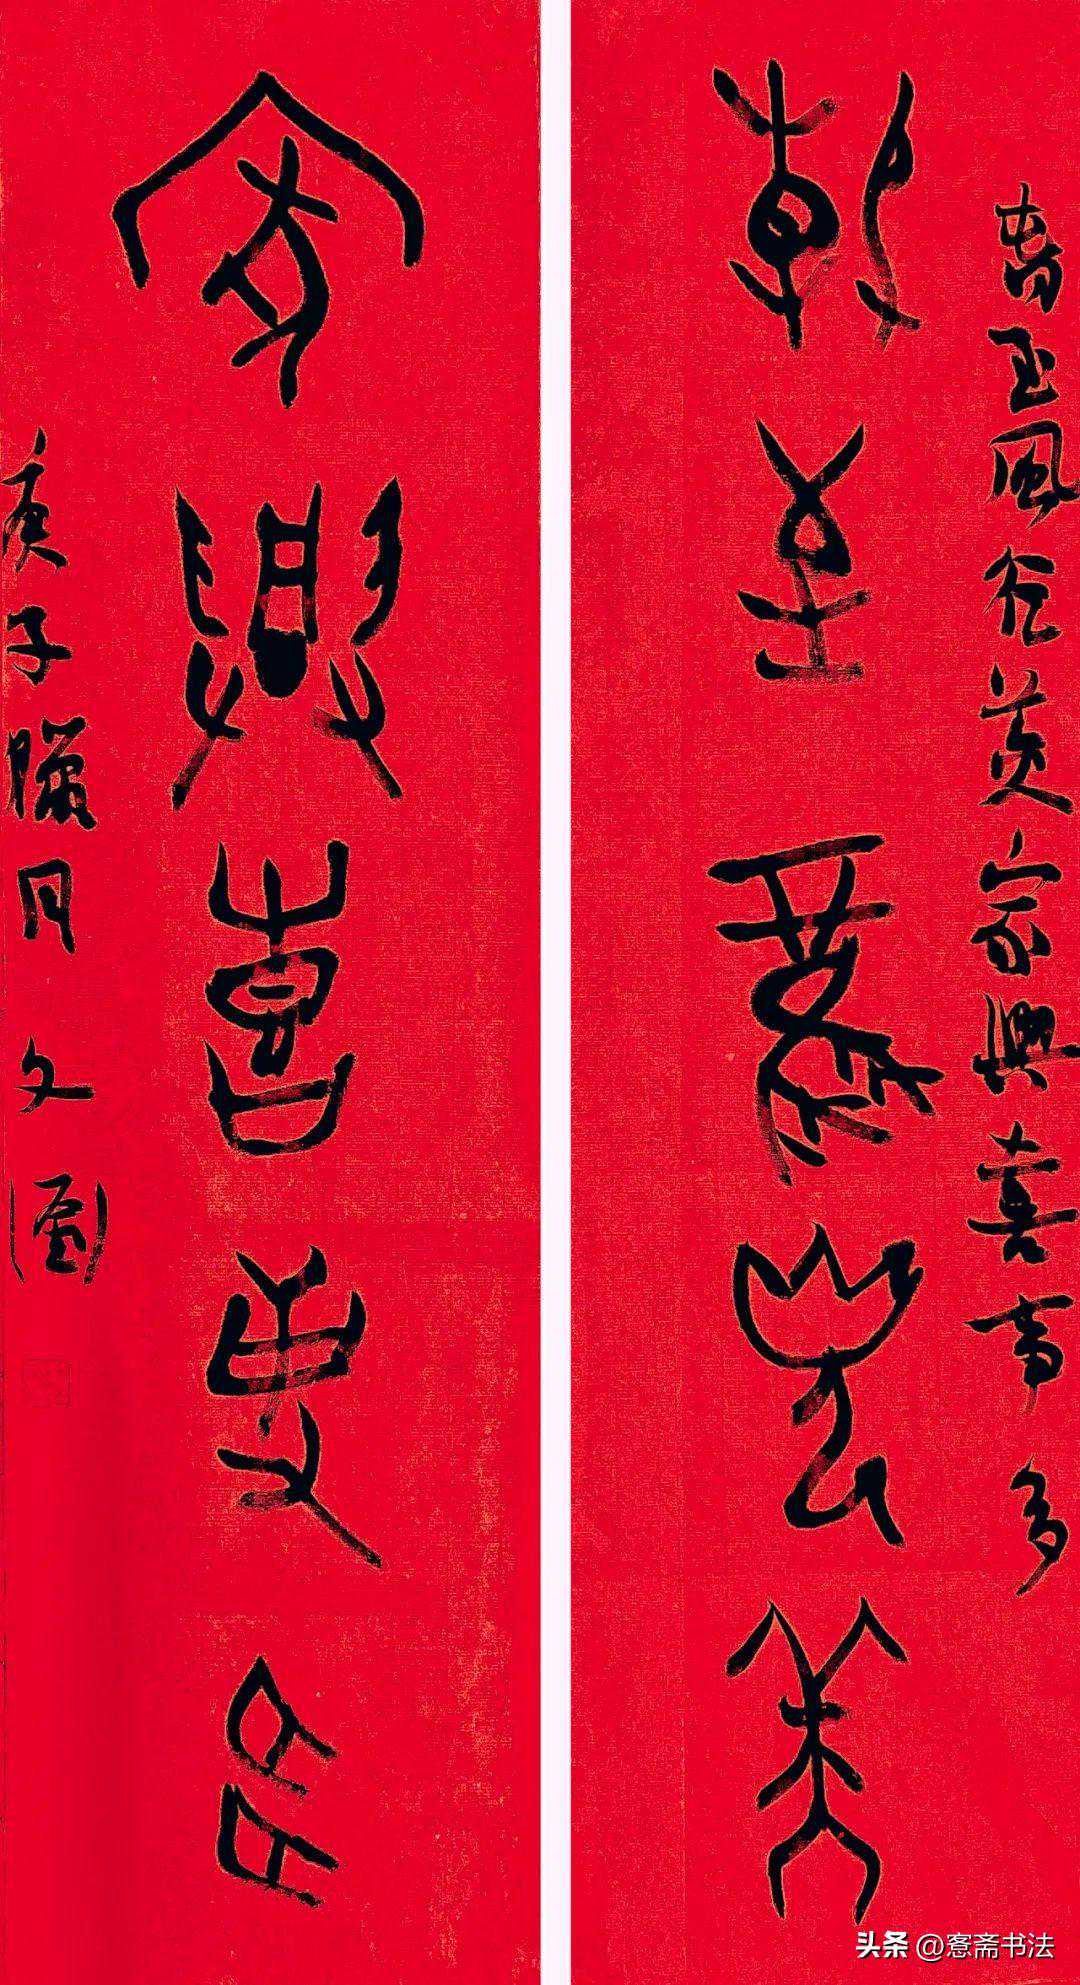 春至風光美家興喜事多
春至風光美
家興喜事多
庚子臘月文圖
头条 @愙斋书法